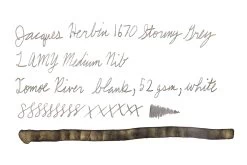 Jacques Herbin 1670 Stormy Grey
LAMY Medium Nib
Tomoe River blank, 52 gsm, white